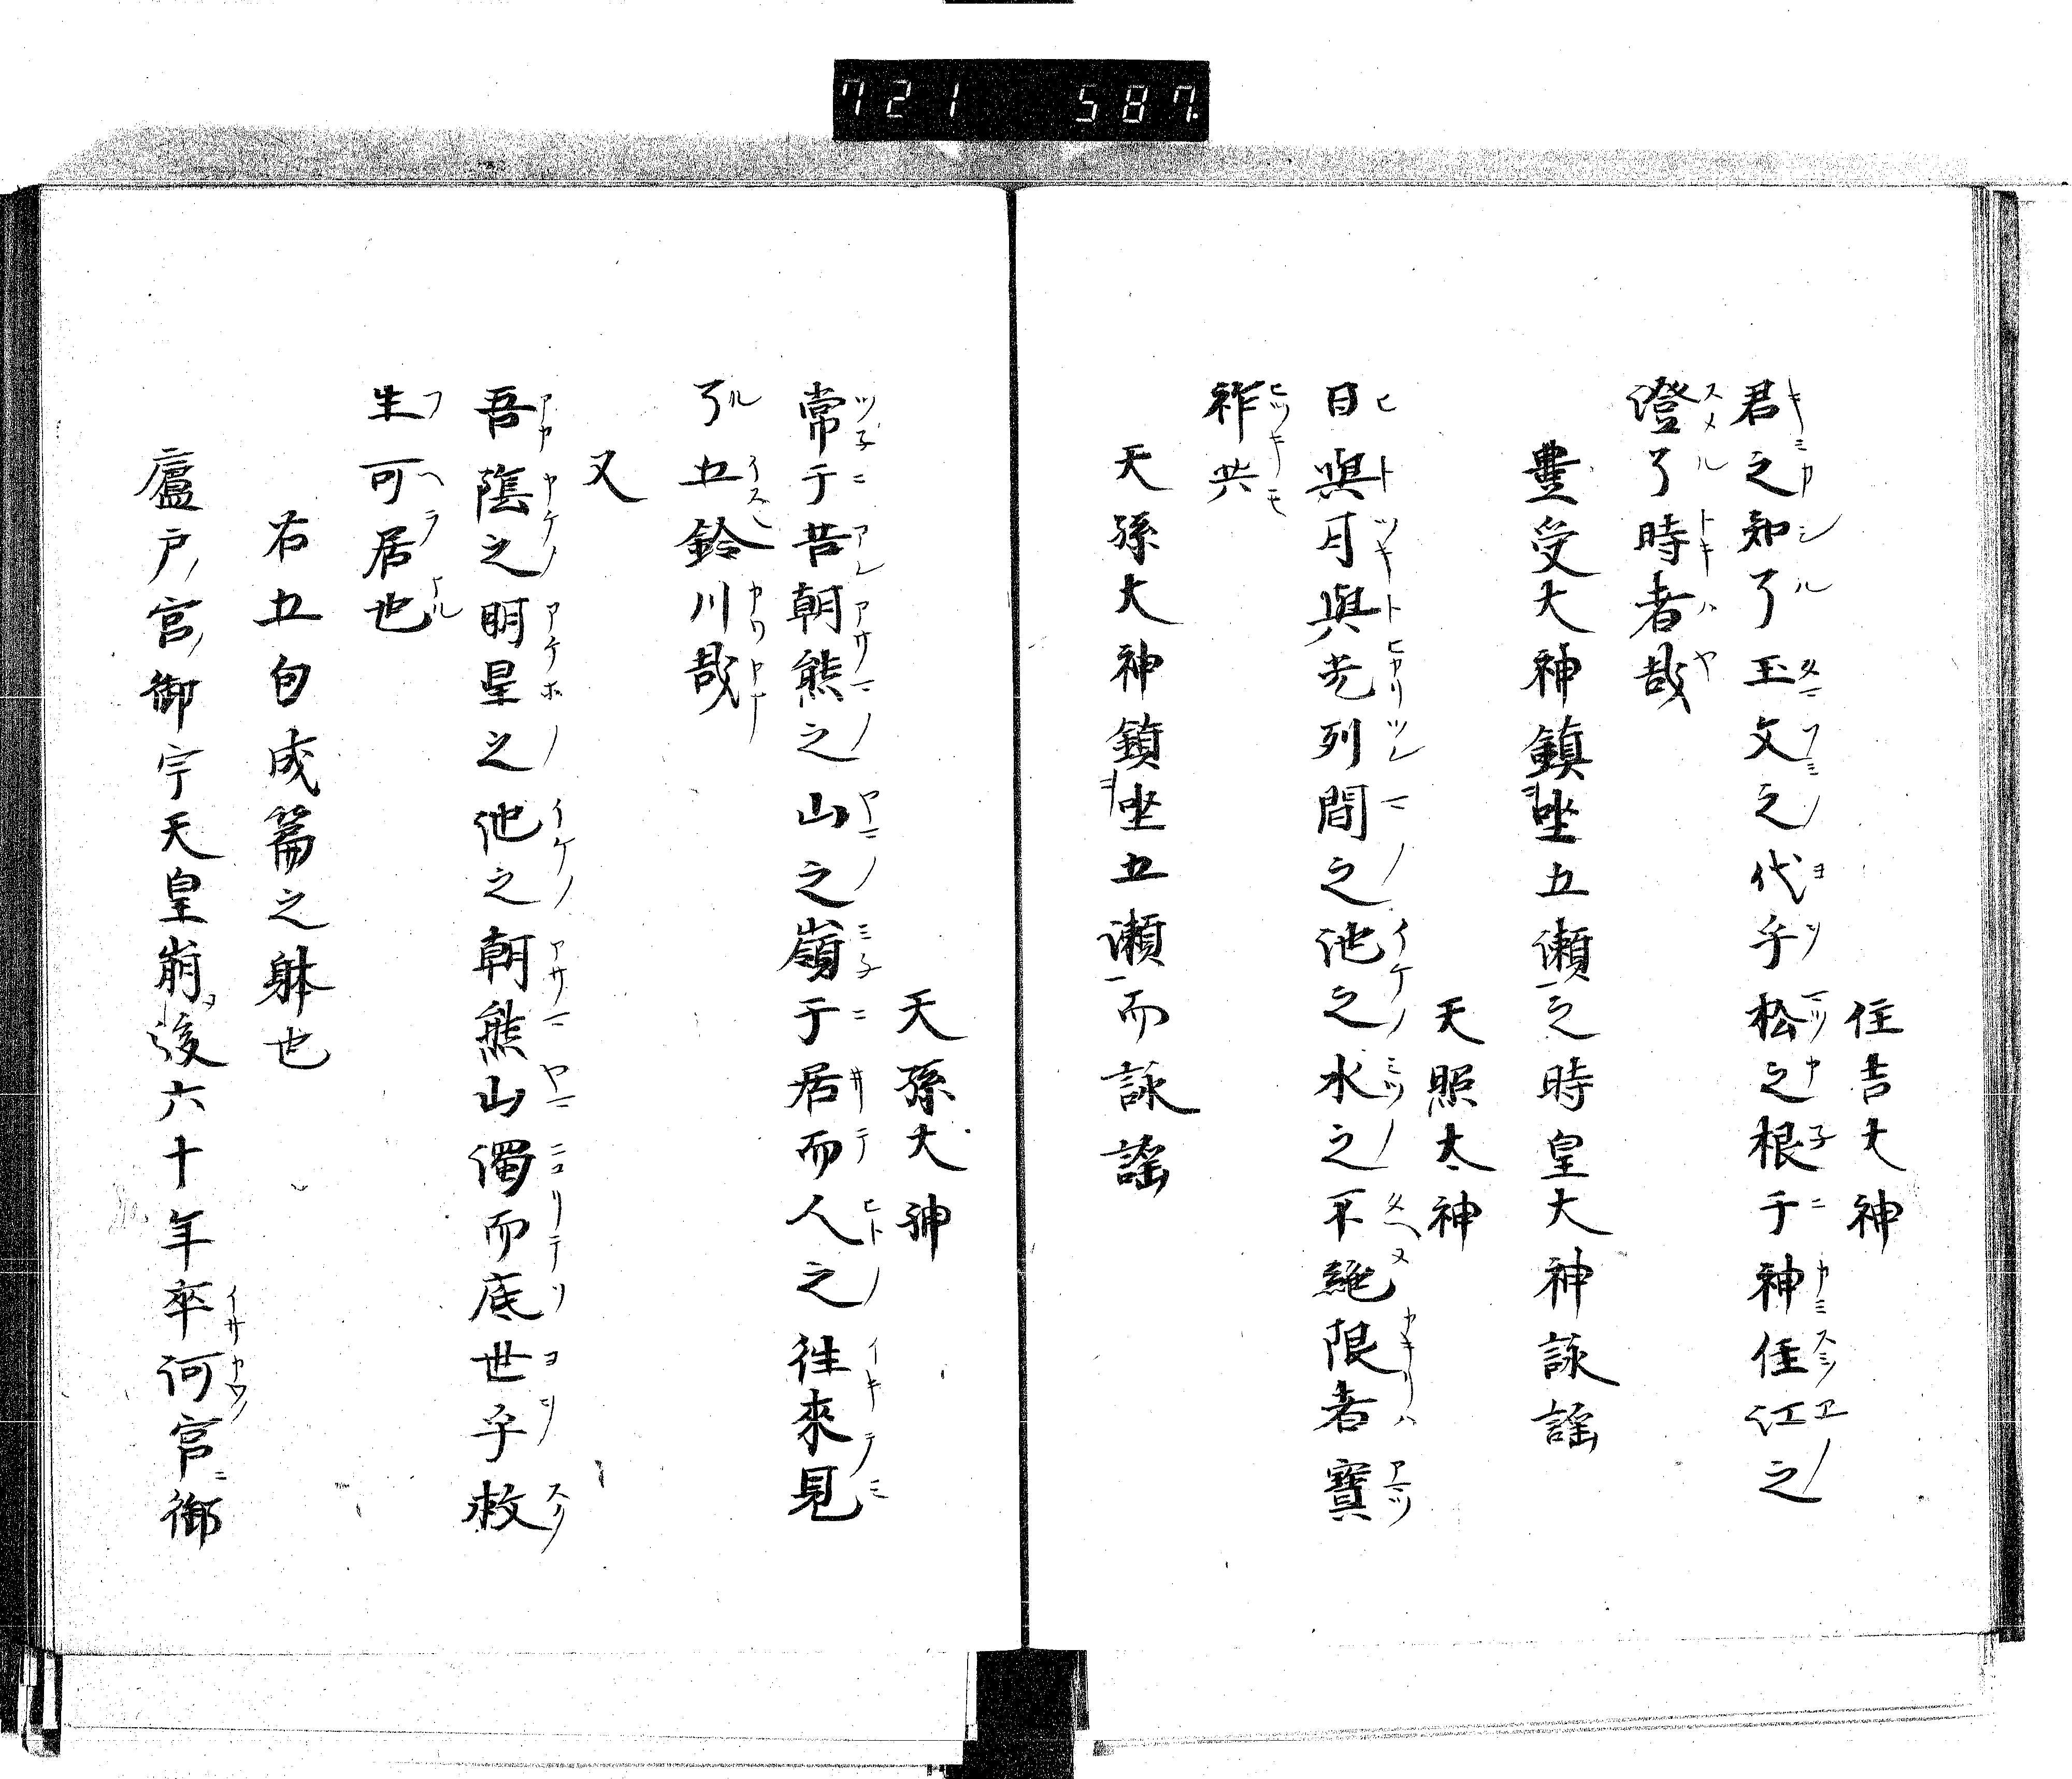 721 587.
住吉大神
君之知了玉文之代乎松之根于神住江之
澄了時者哉
豊受大神鎮坐五瀬之時皇大神詠謡
天照太神
日與月與光列間之池之水之不絶限者寶
祚共
天孫大神鎮坐五瀬而詠謡
天孫大神
常于昔朝熊之山之嶺于居而人之往來見
了五鈴川哉
又
吾陰之明星之池之朝熊山濁而底世乎救
生可居也
右五句成篇之躰也
廬戸ノ宮ノ御宇天皇崩後六十年卒河宮ニ御